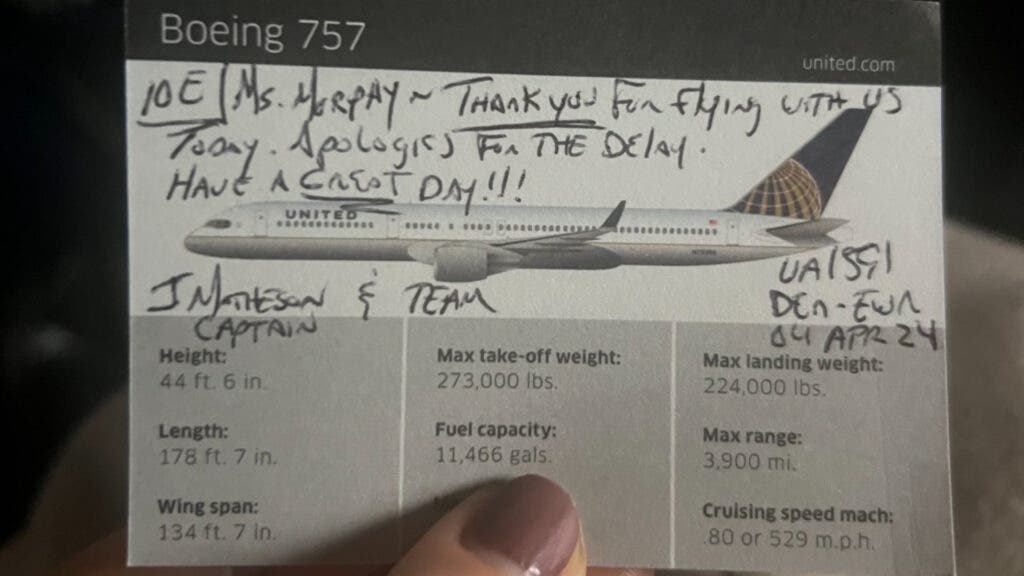 Boeing 757
united.com
10E | Ms. Murphy ~ Thank you for flying with us
Today. Apologies for the delay.
Have a great day!!!
UNITED
J Matheson & Team
Captain
UA1591
DEN-EWR
04 APR 24
Height:
44 ft. 6 in.
Max take-off weight:
273,000 lbs.
Max landing weight:
224,000 lbs.
Length:
178 ft. 7 in.
Fuel capacity:
11,466 gals.
Max range:
3,900 mi.
Wing span:
134 ft. 7 in.
Cruising speed mach:
.80 or 529 m.p.h.